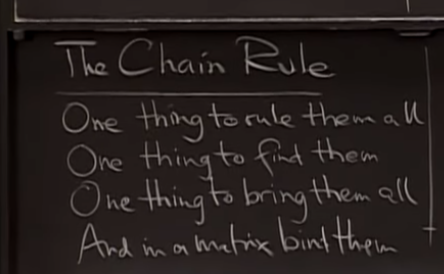 The Chain Rule
One thing to rule them all
One thing to find them
One thing to bring them all
And in a matrix bind them